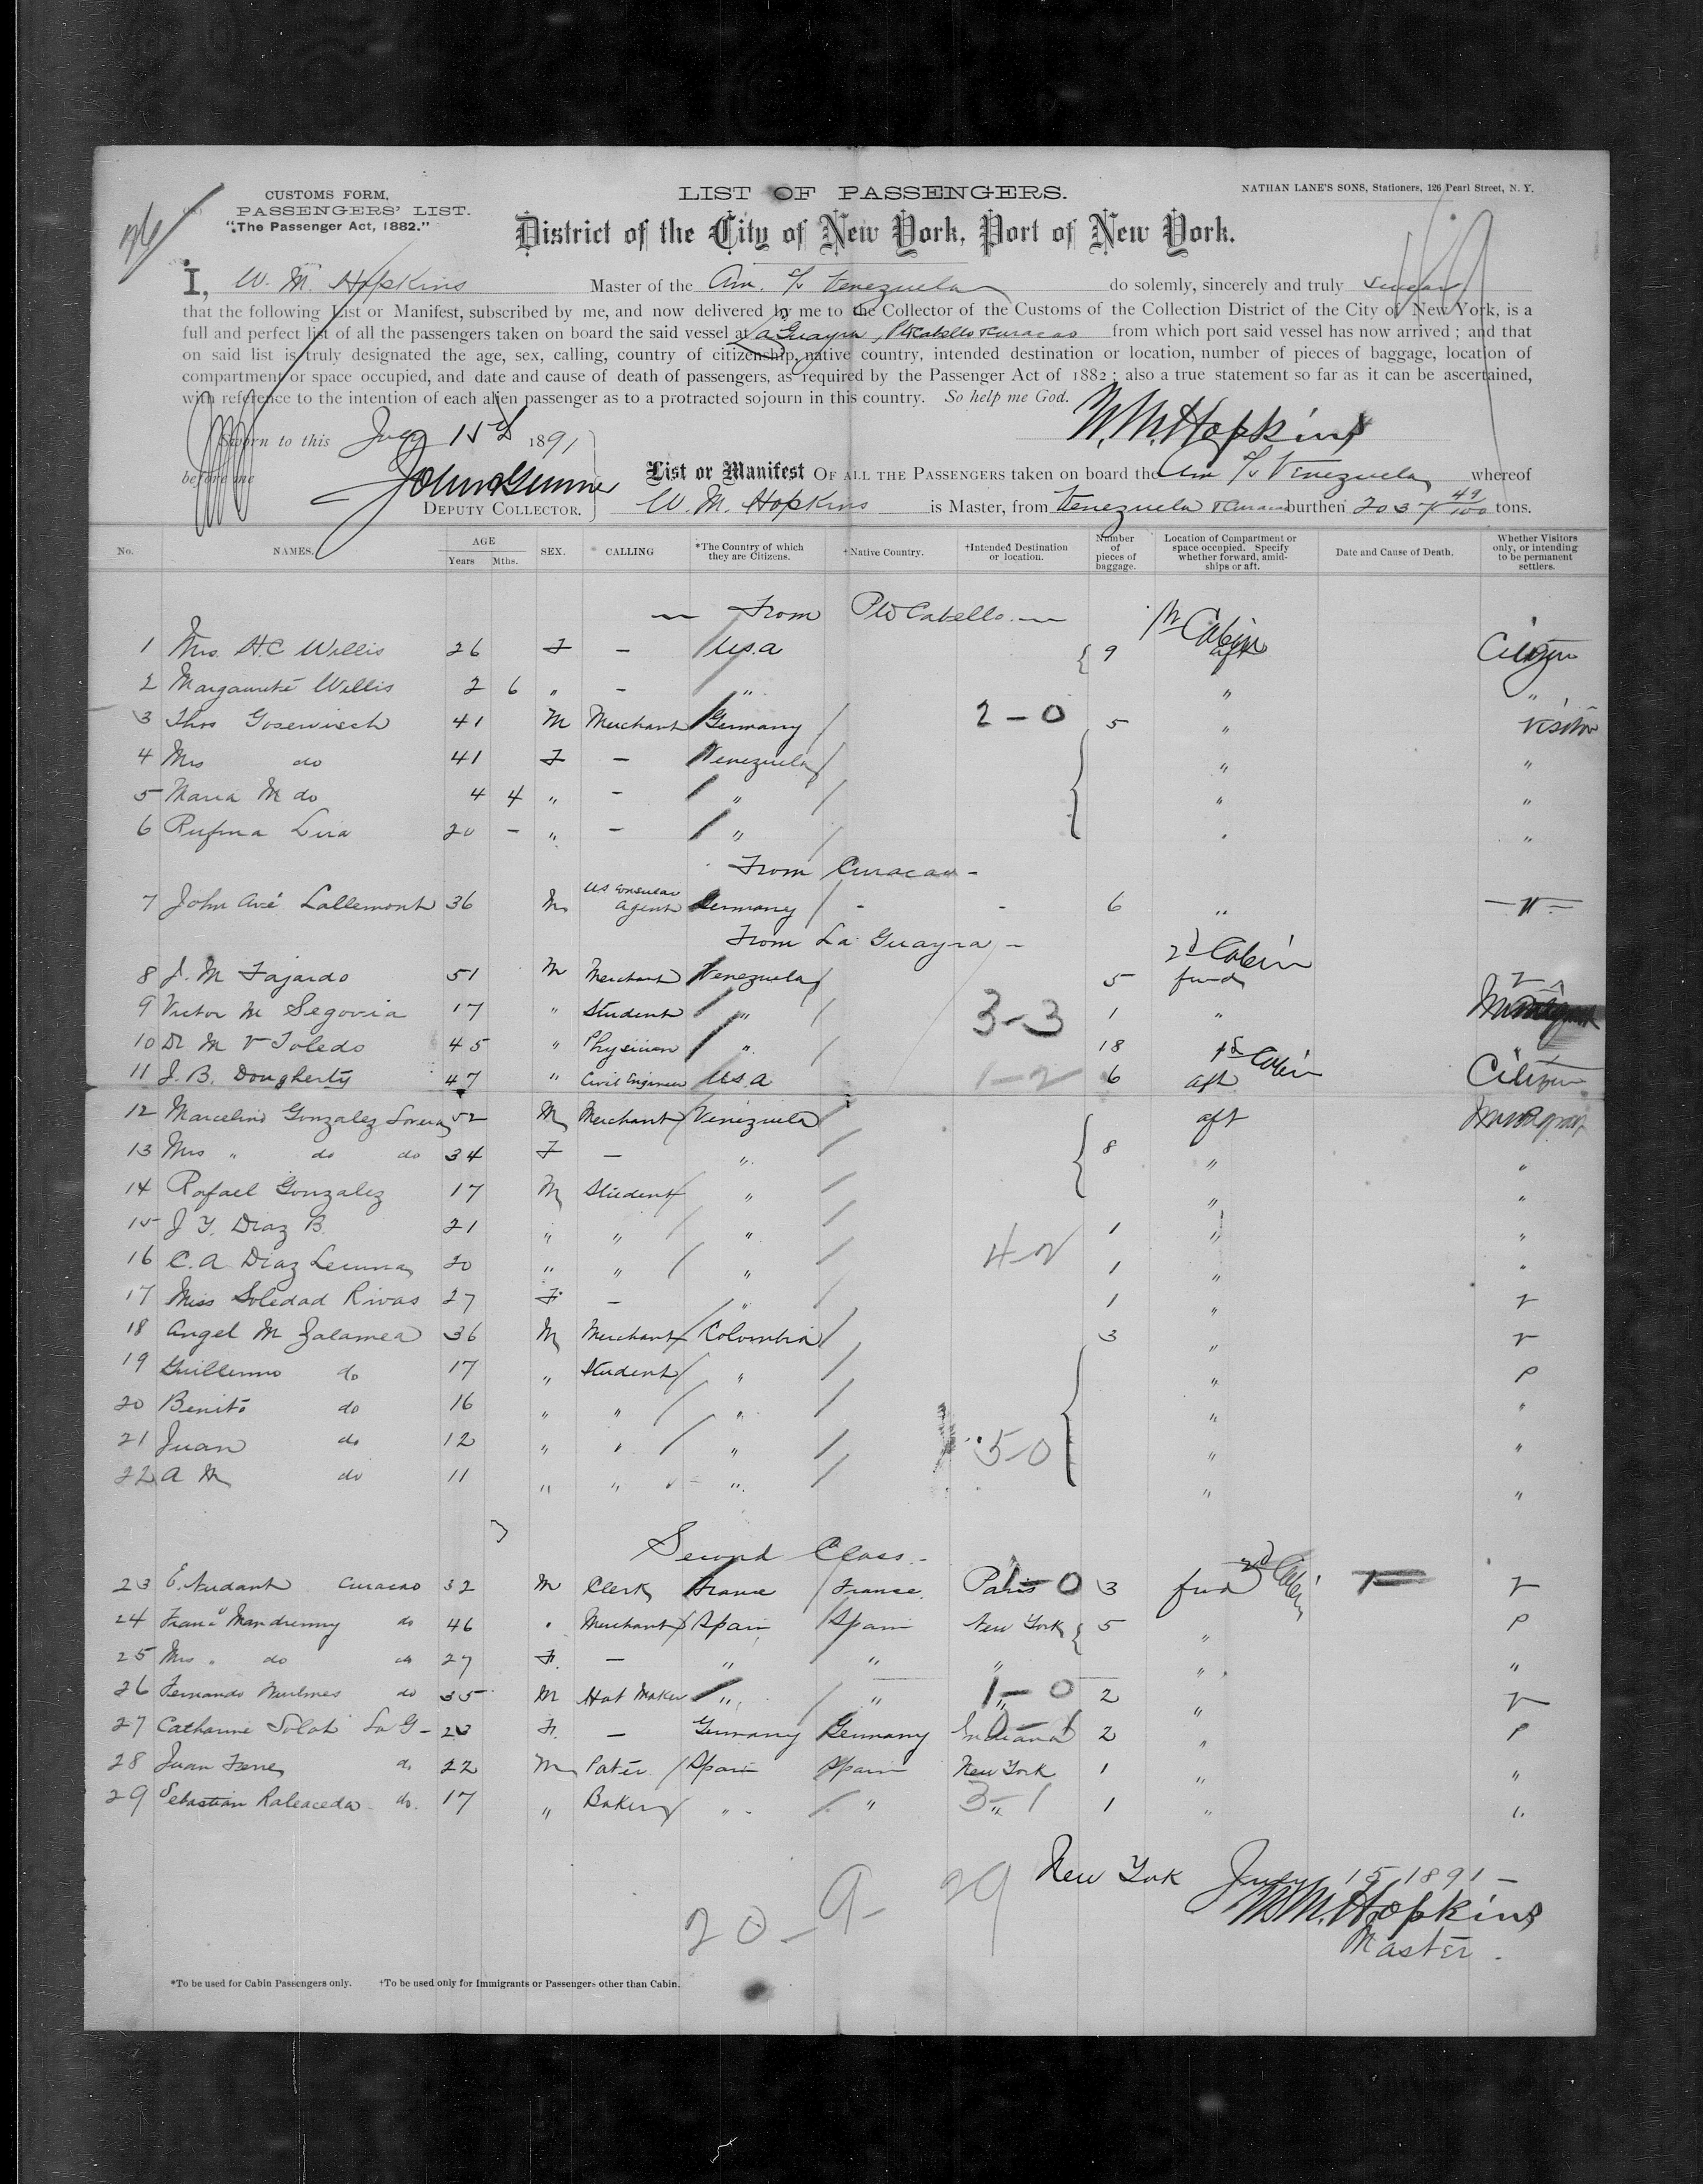 CUSTOMS FORM,
PASSENGERS' LIST.
"The Passenger Act, 1882."
LIST OF PASSENGERS.
NATHAN LANE'S SONS, Stationers, 126 Pearl Street, N. Y.
District of the City of New York, Port of New York.
I, W. M. Hopkins Master of the Am. S/S Venezuela do solemnly, sincerely and truly swear
that the following List or Manifest, subscribed by me, and now delivered by me to the Collector of the Customs of the Collection District of the City of New York, is a
full and perfect list of all the passengers taken on board the said vessel at La Guayra, Pto Cabello & Curacao from which port said vessel has now arrived; and that
on said list is truly designated the age, sex, calling, country of citizenship, native country, intended destination or location, number of pieces of baggage, location of
compartment or space occupied, and date and cause of death of passengers, as required by the Passenger Act of 1882; also a true statement so far as it can be ascertained,
with reference to the intention of each alien passenger as to a protracted sojourn in this country. So help me God.
W. M. Hopkins
Sworn to this July 15th 1891
before me
DEPUTY COLLECTOR.
List or Manifest OF ALL THE PASSENGERS taken on board the Am S/S Venezuela whereof
W. M. Hopkins is Master, from Venezuela & Curacao burthen 2037 49/100 tons.
No. NAMES. AGE Years Mths. SEX. CALLING *The Country of which they are Citizens. †Native Country. †Intended Destination or location. Number of pieces of baggage. Location of Compartment or space occupied. Specify whether forward, amidships or aft. Date and Cause of Death. Whether Visitors only, or intending to be permanent settlers.
— From Pto Cabello — 1st Cabin
1 Mrs. H.C Willis 26 F — U.S.a 9 aft Citizen
2 Margaurite Willis 2 6 " — " " "
3 Thos Gosewisch 41 M Merchant Germany 2-0 5 " visitor
4 Mrs do 41 F — Venezuela " "
5 Maria M do 4 4 " — " " "
6 Rufina Lira 20 — " — " " "
From Curacao -
7 John Avé Lallemont 36 M US Consular Agent Germany - - 6 " — " —
From La Guayra - 2d Cabin
8 J. M Fajardo 51 M Merchant Venezuela 5 fwd
9 Victor M Segovia 17 " Student " 3-3 1 "
10 Dr M V Toledo 45 " Physician " 18 1st Cabin
11 J. B. Dougherty 47 " Civil Engineer U.S.a 1-2 6 aft Citizen
12 Marcelino Gonzalez 52 M Merchant Venezuela aft
13 Mrs " do do 34 F — " 8 " "
14 Rafael Gonzalez 17 M Student " " "
15 J Y. Diaz B. 21 " " " 1 " "
16 C. A Diaz Lecuna 20 " " " 4-2 1 " "
17 Miss Soledad Rivas 27 F — " 1 " v
18 Angel M Zalamea 36 M Merchant Colombia 3 " v
19 Guillermo do 17 " Student " " P
20 Benito do 16 " " " " "
21 Juan do 12 " " " 5-0 " "
22 A M do 11 " " " " "
Second Class. - 2d Cabin
23 E. Nudant Curacao 32 M Clerk France France Paris 1-0 3 fwd v
24 do 46 " Merchant Spain Spain New York 5 " P
25 Mrs " do do 27 F. — " " " " "
26 Fernando do 35 M Hat Maker " " " 1-0 2 " v
27 Catharine La G- 23 F. — Germany Germany Indiana 0-1 2 " P
28 Juan do 22 M Spain Spain New York 1 " "
29 Sebastian do. 17 " Baker " " " 3-1 1 " "
20-9- 29
New York July 15 1891 -
W. M. Hopkins
Master.
*To be used for Cabin Passengers only. †To be used only for Immigrants or Passengers other than Cabin.